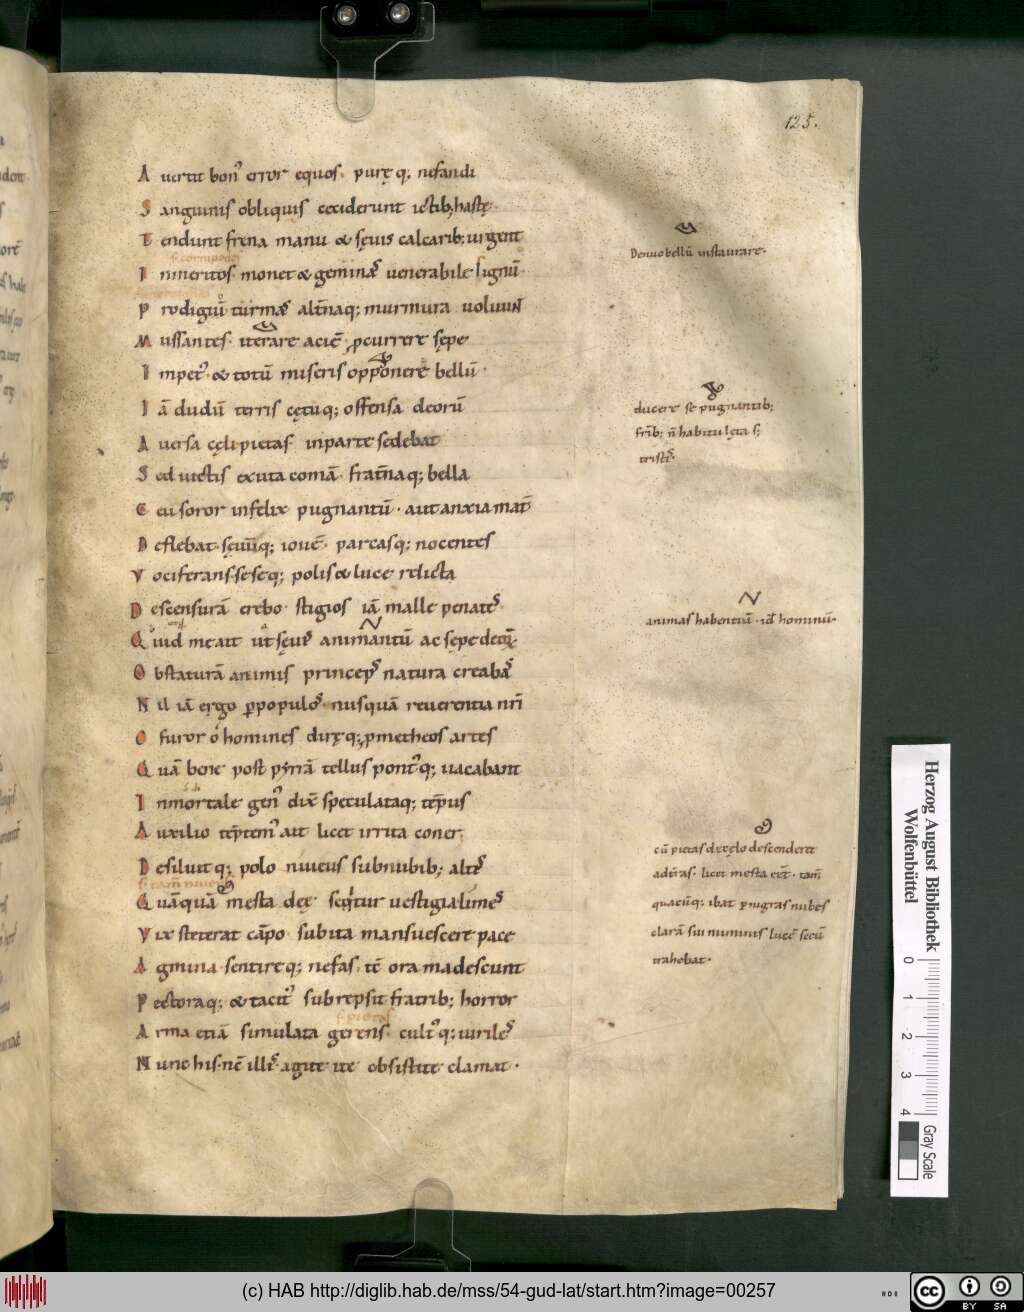 125.
A uertit bon᾽ error equos. puręq; nefandi
S anguinis obliquis ceciderunt ictib; hastę.
T endunt frena manu & sęuis calcarib; urgent
I nmeritos monet & geminas uenerabile signū.
P rodigiū turmas alt̄naq; murmura uoluunt
M ussantes. iterare aciē. ꝓcurrere sępe
I mpet᾽. & totū miseris opponere bellū.
I ā dudū terris cętuq; offensa deorū
A uersa cęli pietas in parte sedebat
S ed uictis exuta comā. frat̄naq; bella
C eu soror infelix pugnantū. aut anxia mat̄
D eflebat. sęuūq; iouē. parcasq; nocentes
V ociferans. seseq; polis & luce relicta
D escensurā erebo. stigios iā malle penates.
Q uid me ait ut sęuis animantū ac sępe deoꝝ.
O bstaturā animis princeps natura creabas
N il iā ergo ꝑ populos. nusquā reuerentia nr̄i
O furor o homines diręq; ꝓmetheos artes
Q uā bene post pyrrā tellus pont᾽q; uacabant
I nmortale gen᾽ dixit speculataq; tēpus
A uxilio tēptem᾽ ait licet irrita coner,
D esiluitq; polo niueus sub nubib; altis
s. tam̄ niue᾽
Q uāquā mesta deę sequitur uestigia limes
V ix steterat cāpo subita mansuescere pace
A gmina. sentireq; nefas. tē ora madescunt
P ectoraq; & tacit᾽ subrepsit fratrib; horror
s. pietas
A rma etiā simulata gerens. cult᾽q; uiriles
N unc his. nc̄ illis. agite ite obsistite clamat.
Denuo bellū instaurare.
ducere se pugnantib;
fr̄ib; n̄ habitu lęta s;
tristis.
animas habentiū. id̄ hominū.
cū pietas de cęlo descenderet
ad t̄ras. licet mesta eēt. tam̄
quacūq; ibat ꝑ nigras nubes
clarā sui numinis lucē secū
trahebat.
Herzog August Bibliothek
Wolfenbüttel
0 1 2 3 4
Gray Scale
(c) HAB http://diglib.hab.de/mss/54-gud-lat/start.htm?image=00257
cc BY SA